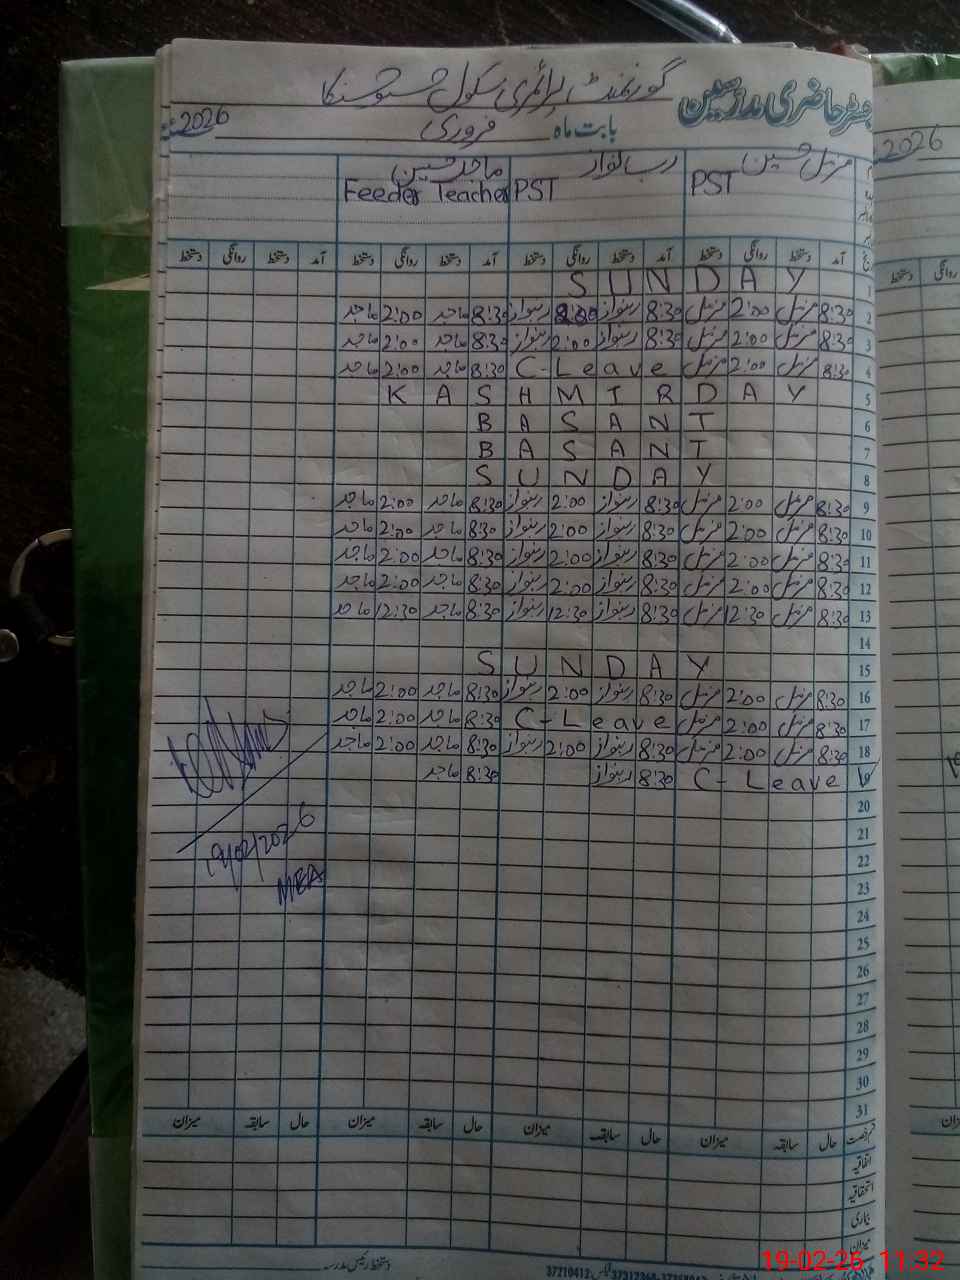 رجسٹر حاضری مدرسین
گورنمنٹ پرائمری سکول
بابت ماہ فروری 2026
مزمل حسین ربنواز ماجد حسین
PST PST Feeder Teacher
آمد دستخط روانگی دستخط آمد دستخط روانگی دستخط آمد دستخط روانگی دستخط آمد دستخط روانگی دستخط
1 SUNDAY
2 8:30 مزمل 2:00 مزمل 8:30 ربنواز ربنواز 8:30 ماجد 2:00 ماجد
3 8:30 مزمل 2:00 مزمل 8:30 ربنواز 2:00 ربنواز 8:30 ماجد 2:00 ماجد
4 8:30 مزمل 2:00 مزمل C-Leave 8:30 ماجد 2:00 ماجد
5 KASHMIR DAY
6 BASANT
7 BASANT
8 SUNDAY
9 8:30 مزمل 2:00 مزمل 8:30 ربنواز 2:00 ربنواز 8:30 ماجد 2:00 ماجد
10 8:30 مزمل 2:00 مزمل 8:30 ربنواز 2:00 ربنواز 8:30 ماجد 2:00 ماجد
11 8:30 مزمل 2:00 مزمل 8:30 ربنواز 2:00 ربنواز 8:30 ماجد 2:00 ماجد
12 8:30 مزمل 2:00 مزمل 8:30 ربنواز 2:00 ربنواز 8:30 ماجد 2:00 ماجد
13 8:30 مزمل 12:30 مزمل 8:30 ربنواز 12:30 ربنواز 8:30 ماجد 12:30 ماجد
14
15 SUNDAY
16 8:30 مزمل 2:00 مزمل 8:30 ربنواز 2:00 ربنواز 8:30 ماجد 2:00 ماجد
17 8:30 مزمل 2:00 مزمل C-Leave 8:30 ماجد 2:00 ماجد
18 8:30 مزمل 2:00 مزمل 8:30 ربنواز 2:00 ربنواز 8:30 ماجد 2:00 ماجد
19 C-Leave 8:30 ربنواز 8:30 ماجد
19/02/2026
MEA
20
21
22
23
24
25
26
27
28
29
30
31
قسم رخصت حال سابقہ میزان حال سابقہ میزان حال سابقہ میزان
اتفاقیہ
استحقاقیہ
بیماری
میزان
دستخط رئیس مدرسہ
2026
دستخط
19-02-26 11:32